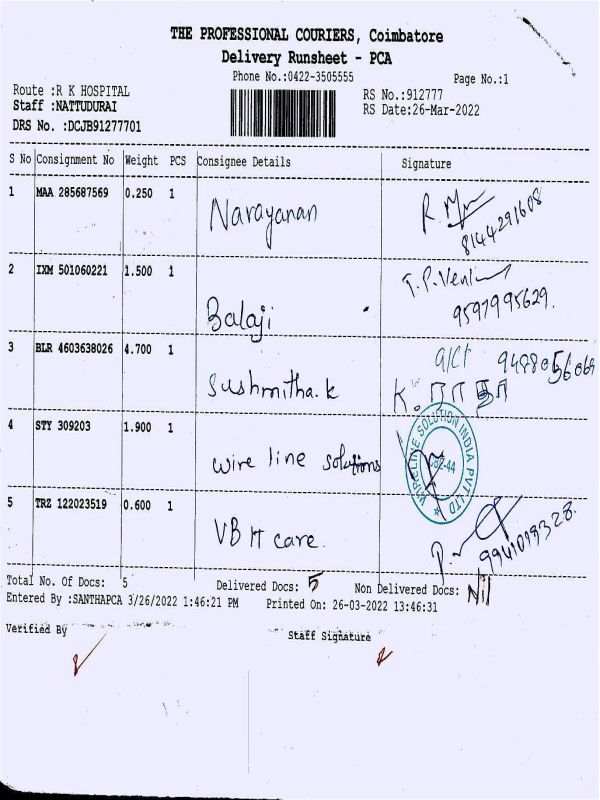 THE PROFESSIONAL COURIERS, Coimbatore
Delivery Runsheet - PCA
Phone No.:0422-3505555
Page No.:1
Route :R K HOSPITAL
RS No.:912777
Staff :NATTUDURAI
RS Date:26-Mar-2022
DRS No. :DCJB91277701
S No Consignment No Weight PCS Consignee Details Signature
1 MAA 285687569 0.250 1 Narayanan
8144291608
2 IXM 501060221 1.500 1 Balaji
9597995629.
3 BLR 4603638026 4.700 1 Sushmitha.k
K. ராதா
4 STY 309203 1.900 1 wire line solutions
WIRELINE SOLUTION INDIA PVT LTD
5 TRZ 122023519 0.600 1 VB H care.
Total No. Of Docs: 5 Delivered Docs: 5 Non Delivered Docs: Nil
Entered By :SANTHAPCA 3/26/2022 1:46:21 PM Printed On: 26-03-2022 13:46:31
Verified By Staff Signature